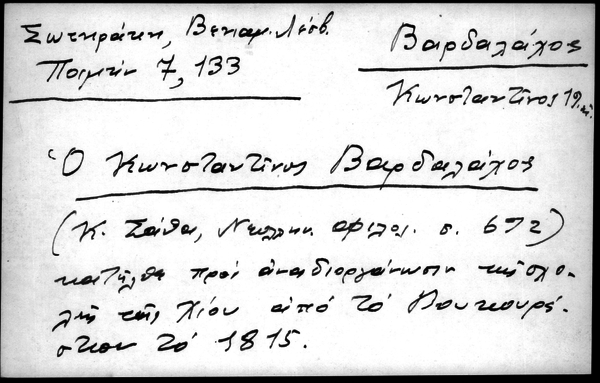 Σωτηράκη, Βενιαμ. Λέσβ.
Ποιμήν 7, 133
Βαρδαλάχος
Κωνσταντῖνος 19. αἰ.
Ὁ Κωνσταντῖνος Βαρδαλάχος
(Κ. Σάθα, Νεοελλην. φιλολ. σ. 692)
κατῆλθε πρός ἀναδιοργάνωσιν τῆς σχο-
λῆς τῆς Χίου ἀπό τό Βουκουρέ-
στιον τό 1815.